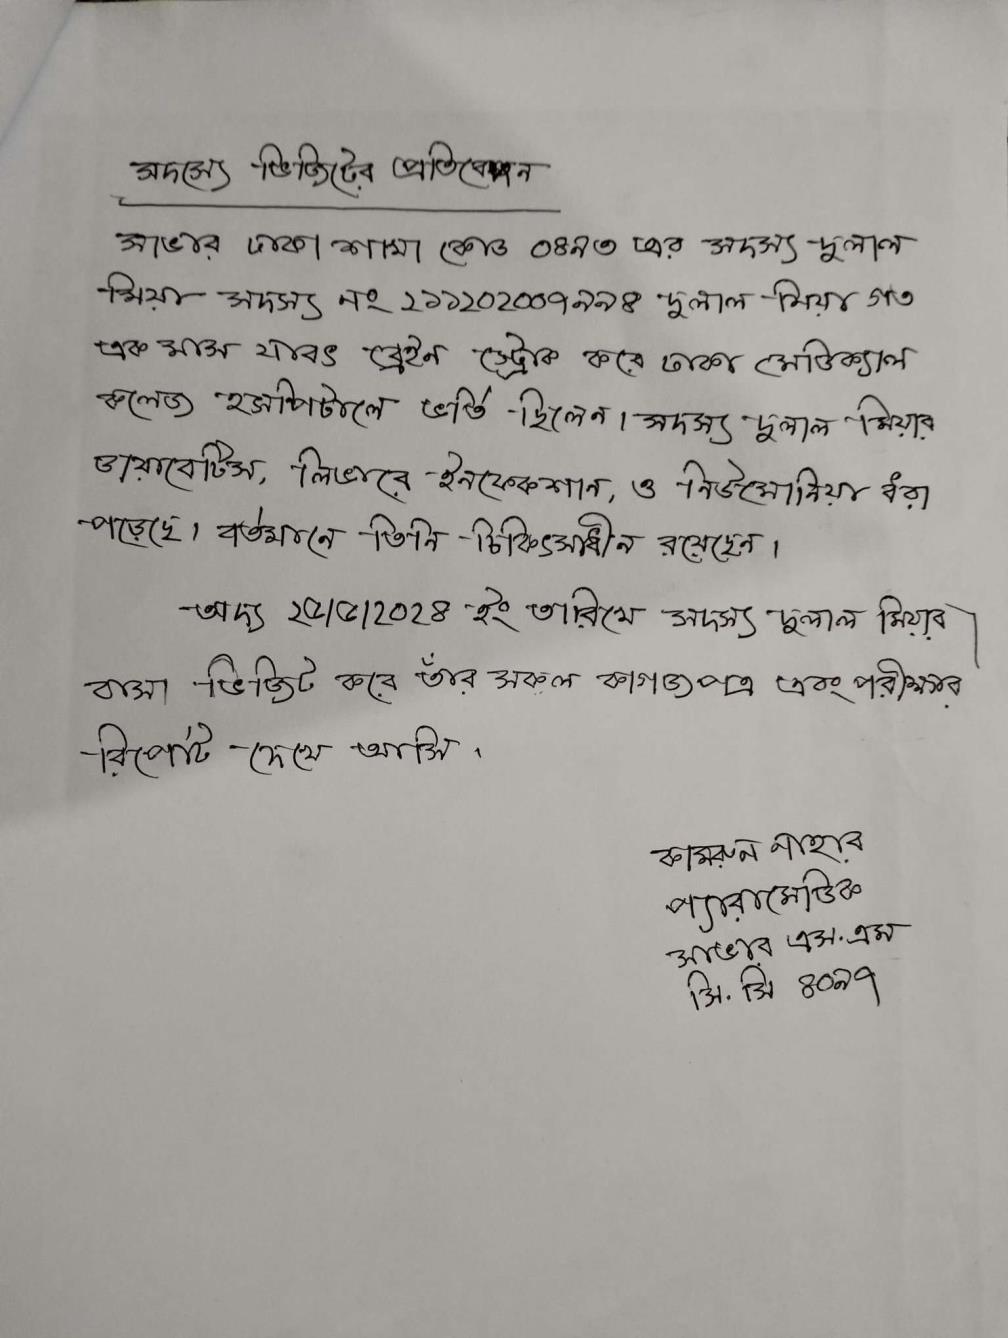 সদস্যে ভিজিটের প্রতিবেদন
সাভার ঢাকা শাখা কোড ০৪৯৩ এর সদস্য দুলাল
মিয়া সদস্য নং ২১১২০২০০৭৯৯৪ দুলাল মিয়া গত
এক মাস যাবৎ ব্রেইন স্ট্রোক করে ঢাকা মেডিক্যাল
কলেজ হসপিটালে ভর্তি ছিলেন। সদস্য দুলাল মিয়ার
ডায়াবেটিস, লিভারে ইনফেকশান, ও নিউমোনিয়া ধরা
পড়েছে। বর্তমানে তিনি চিকিৎসাধীন রয়েছেন।
অদ্য ২৫/৫/২০২৪ ইং তারিখে সদস্য দুলাল মিয়ার
বাসা ভিজিট করে তাঁর সকল কাগজপত্র এবং পরীক্ষার
রিপোর্ট দেখে আসি।
কামরুন নাহার
প্যারামেডিক
সাভার এস.এম
সি. সি ৪০৯৭